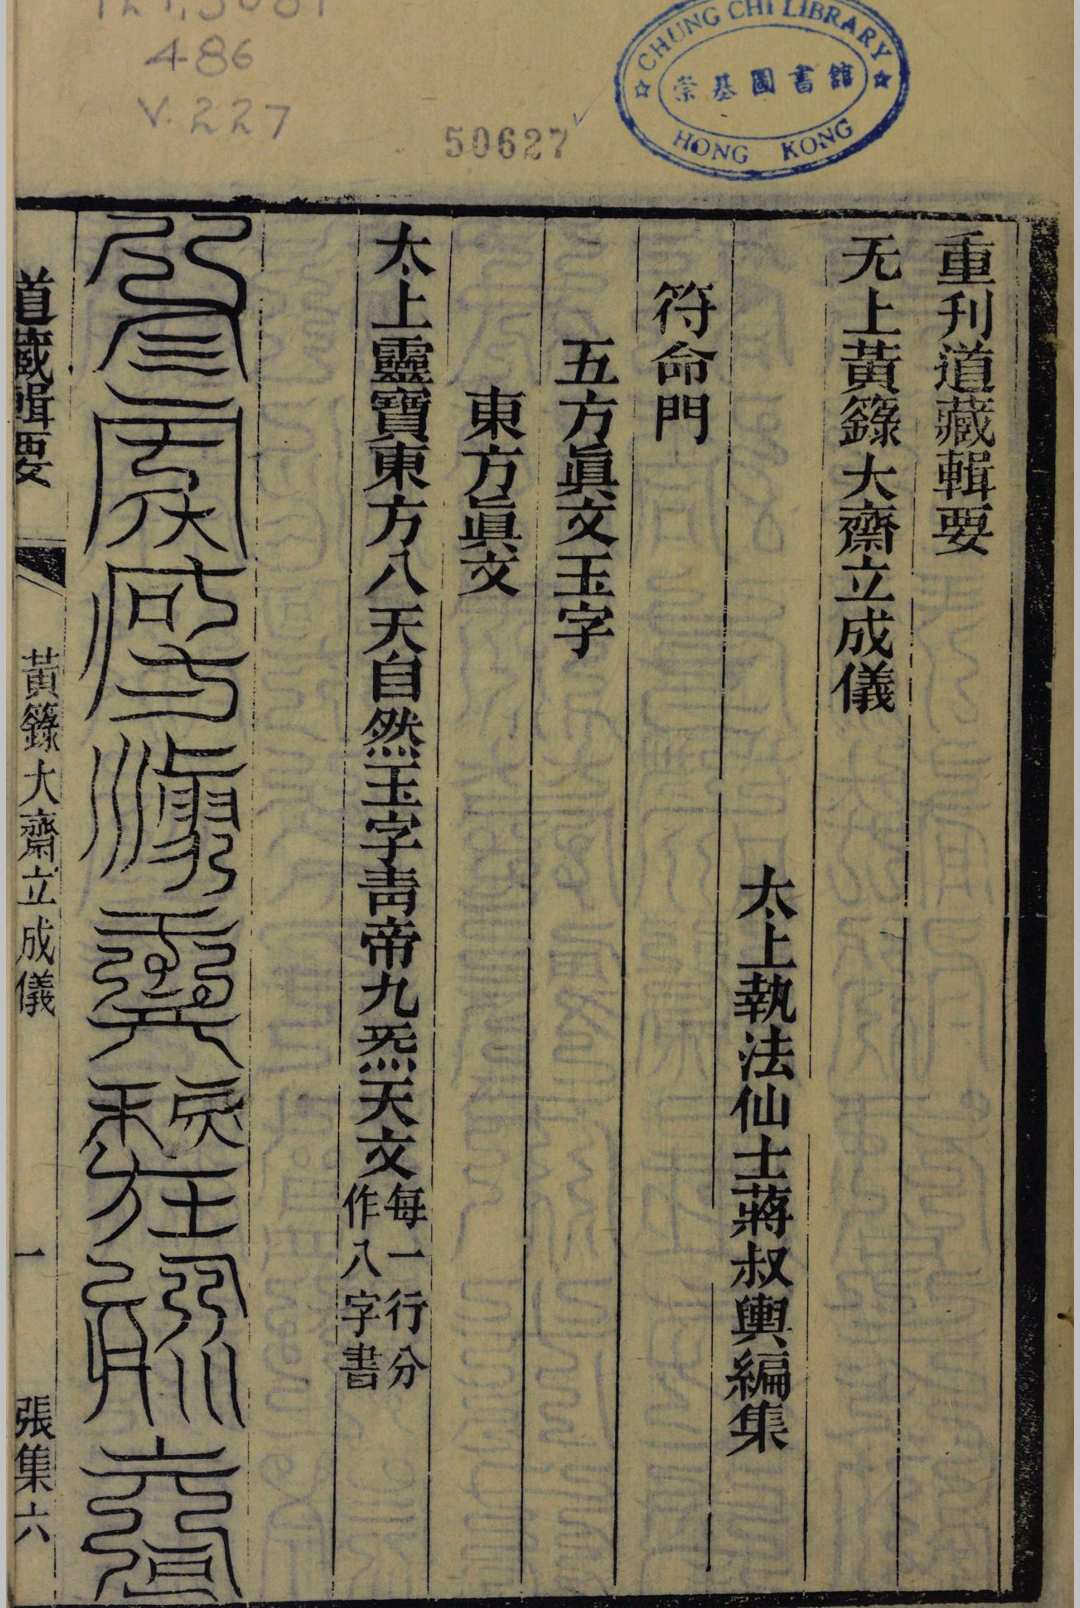 486
V.227
50627
CHUNG CHI LIBRARY
崇基圖書館
HONG KONG
重刊道藏輯要
无上黃籙大齋立成儀
太上執法仙士蔣叔輿編集
符命門
五方眞文玉字
東方眞文
太上靈寶東方八天自然玉字靑帝九炁天文
每一行分
作八字書
道藏輯要
黃籙大齋立成儀
一
張集六